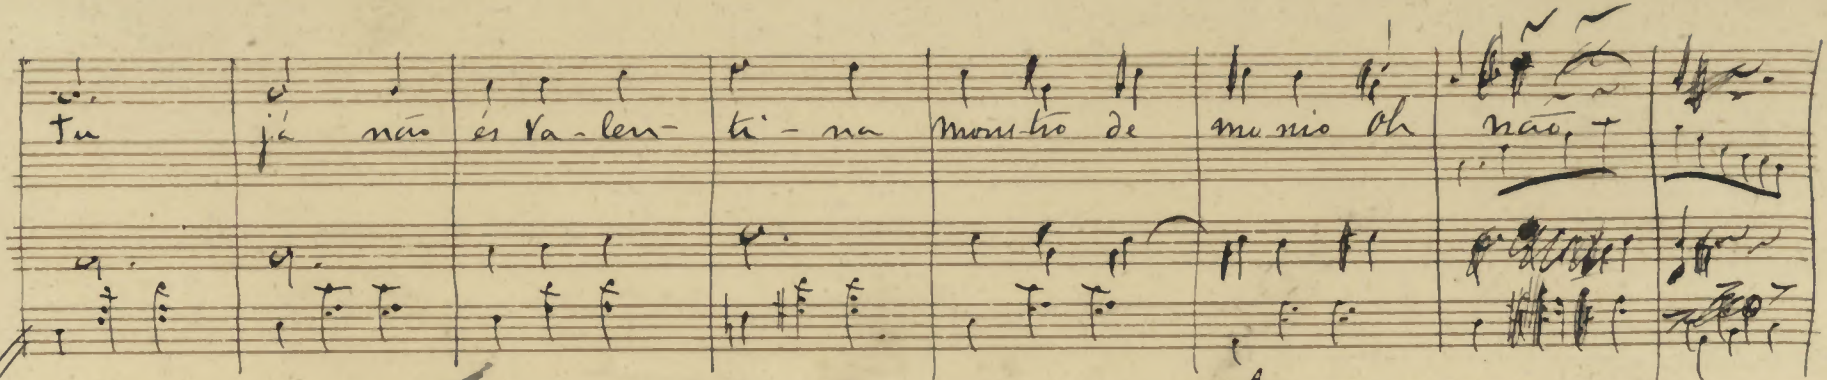 Tu já não és Va-len- ti-na monstro de mo nio oh não